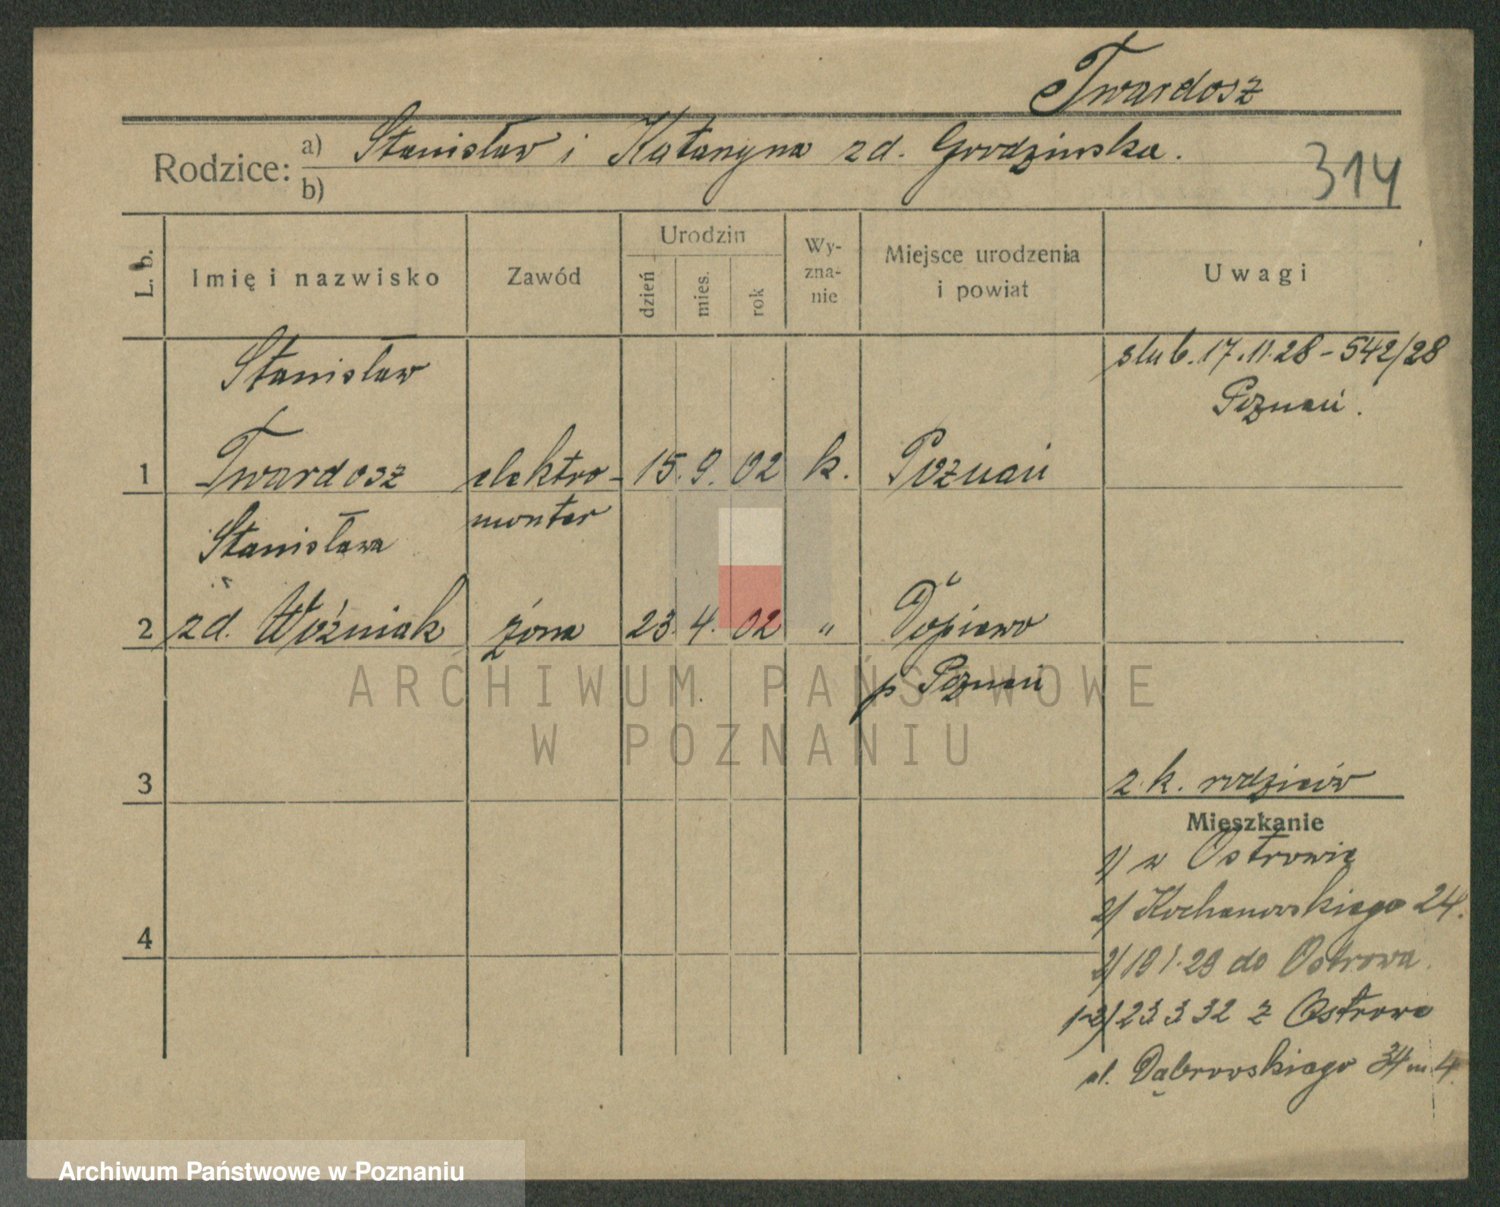 Twardosz
Rodzice: a) Stanisław i Katarzyna zd. Grodzinska.
b)
314
L. b.
Imię i nazwisko
Zawód
Urodzin
dzień
mies.
rok
Wy-
zna-
nie
Miejsce urodzenia
i powiat
Uwagi
Stanisław
ślub. 17.11.28 - 542/28
Poznań.
1 Twardosz elektro- 15. 9. 02 k. Poznań
monter
Stanisława
2 zd. Woźniak żona 23. 4. 02 " Dopiewo
p Poznań
ARCHIWUM PAŃSTWOWE
W POZNANIU
3
z. k. rodziców
Mieszkanie
1/ w Ostrowie
2/ Kochanowskiego 24.
4
2/ 19 1.29 do Ostrowa.
1-2/ 23 3 32 z Ostrowa
ul. Dąbrowskiego 34 m 4.
Archiwum Państwowe w Poznaniu